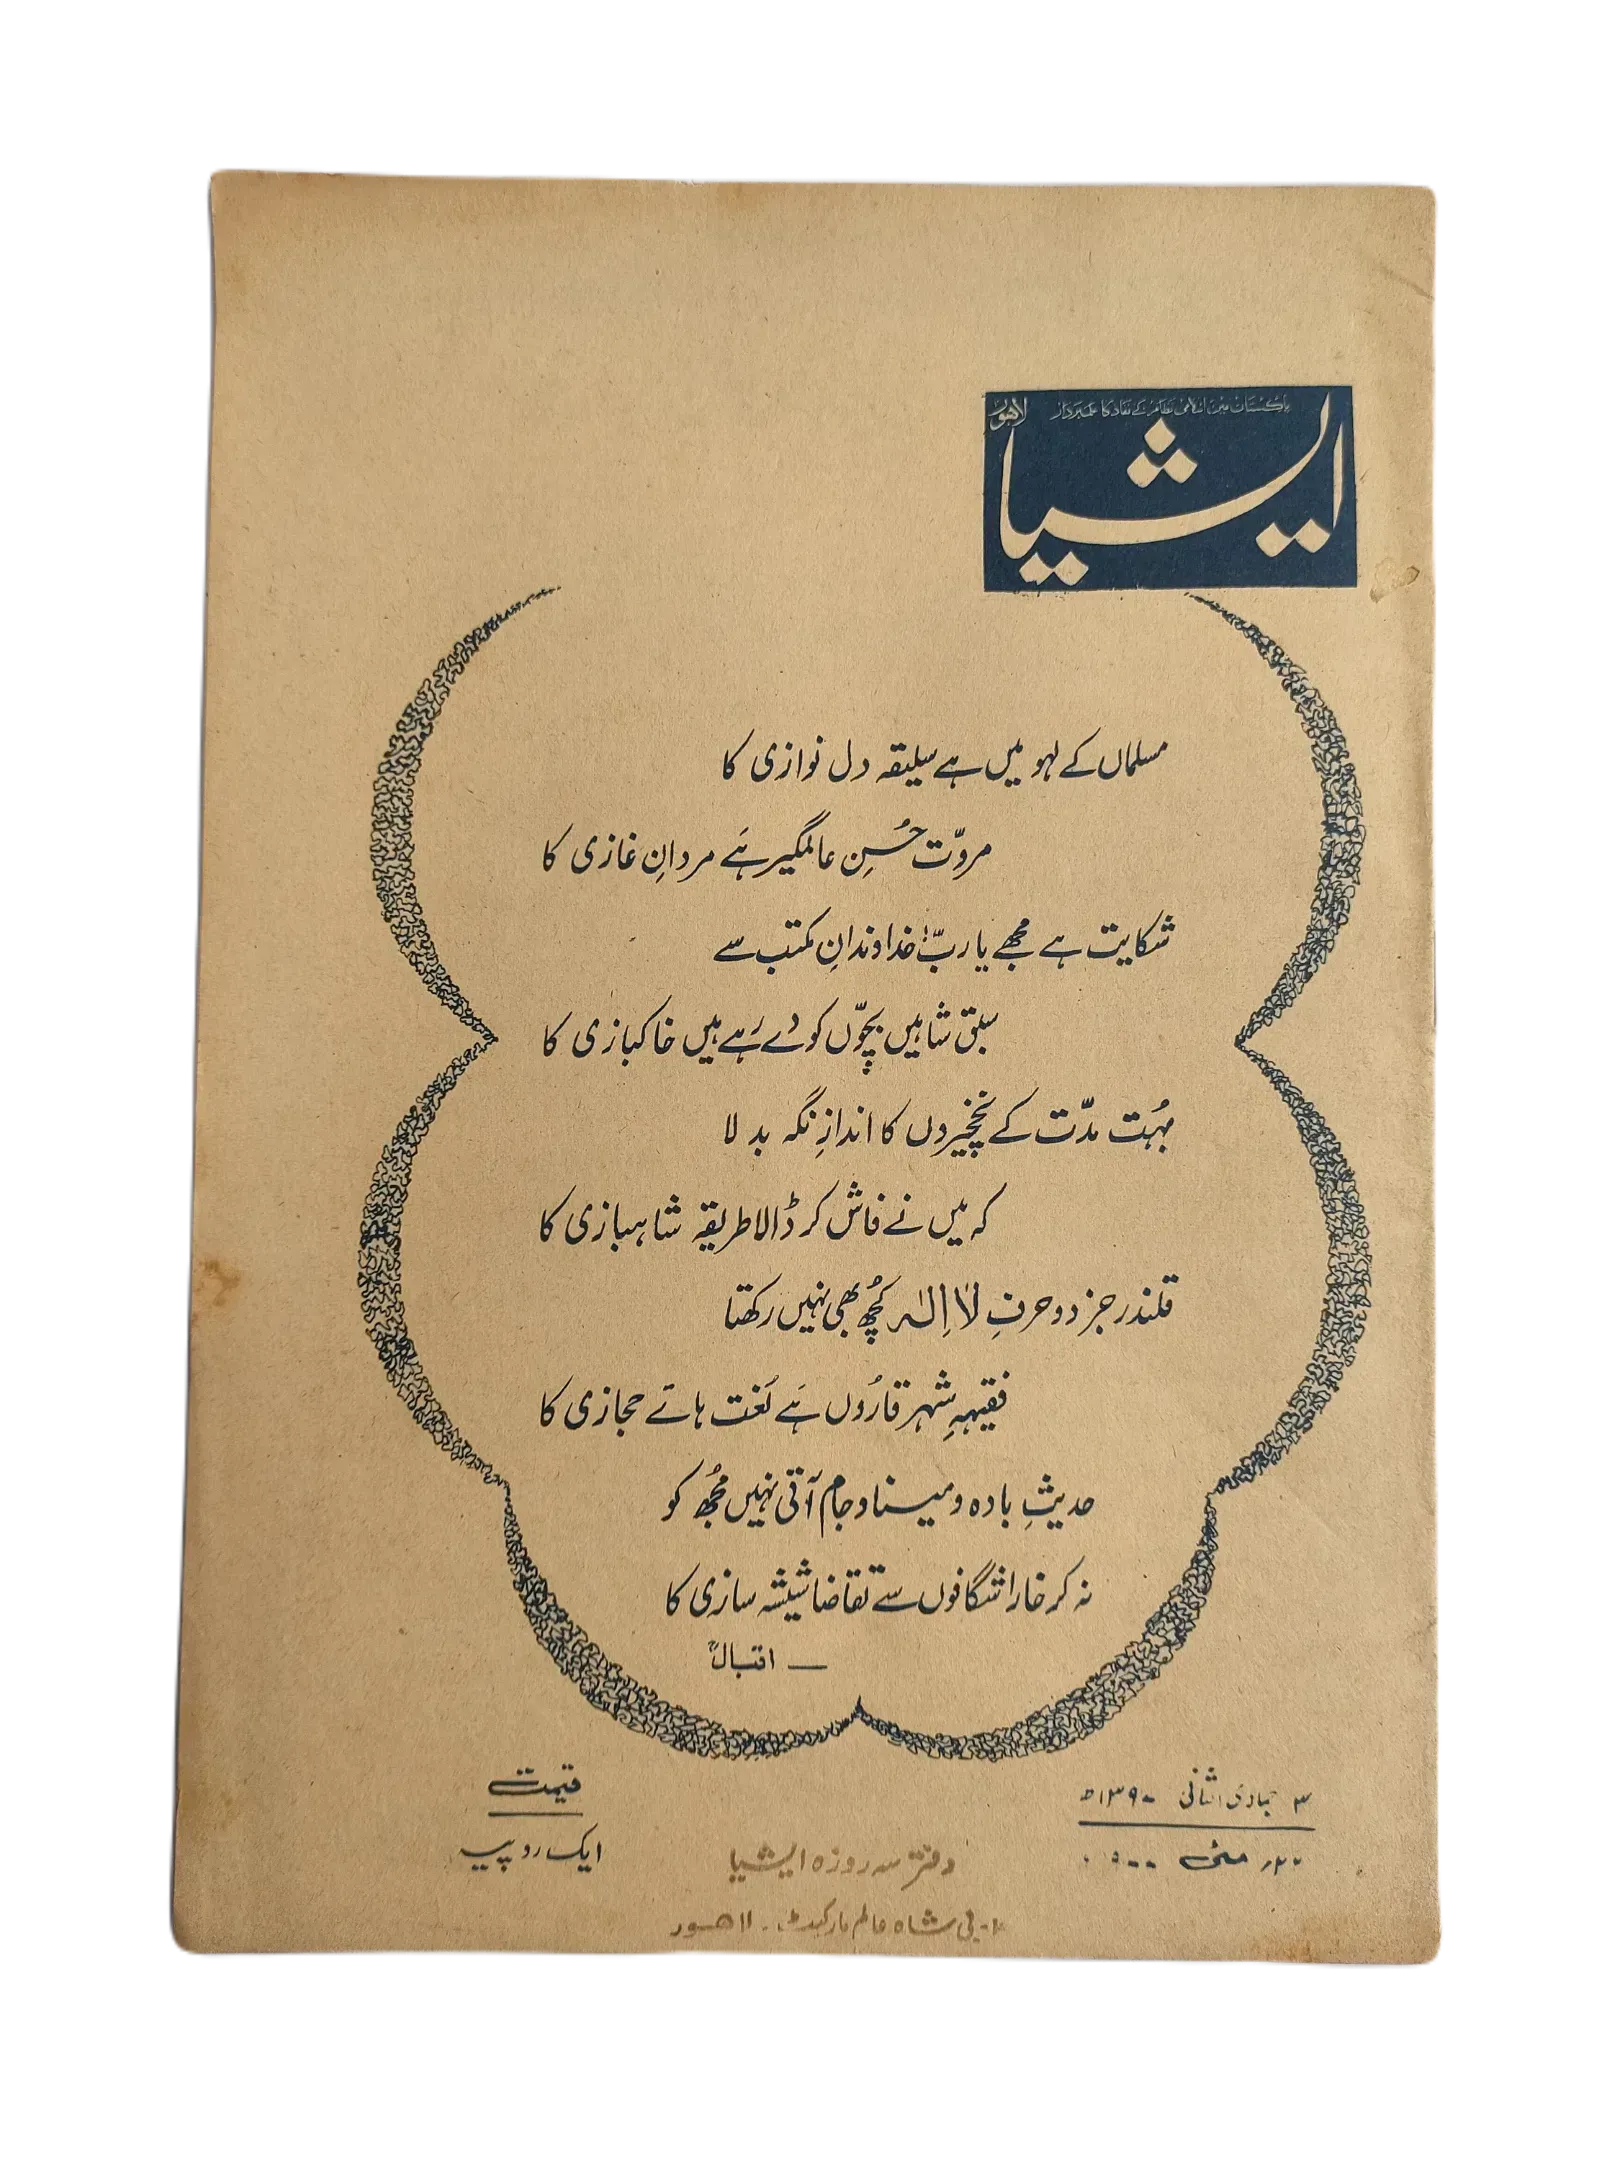 پاکستان میں اسلامی نظام کے نفاذ کا علمبردار
لاہور
ایشیا
مسلماں کے لہو میں ہے سلیقہ دل نوازی کا
مروّت حُسنِ عالمگیر ہَے مردانِ غازی کا
شکایت ہے مجھے یا ربّ! خداوندانِ مکتب سے
سبق شاہیں بچّوں کو دے رَہے ہیں خاکبازی کا
بہُت مدّت کے نخچیروں کا اندازِ نگہ بدلا
کہ میں نے فاش کر ڈالا طریقہ شاہبازی کا
قلندر جز دو حرفِ لَا اِلٰہ کُچھ بھی نہیں رکھتا
فقیہہِ شہر قارُوں ہَے لُغت ہائے حجازی کا
حدیثِ بادہ و مینا و جام آتی نہیں مُجھ کو
نہ کر خارا شگافوں سے تقاضا شیشہ سازی کا
— اقبالؒ
۳ جمادی الثانی ۱۳۹۰ھ
مئی
قیمت
ایک روپیہ
دفتر سہ روزہ ایشیا
شاہ عالم مارکیٹ - لاھور